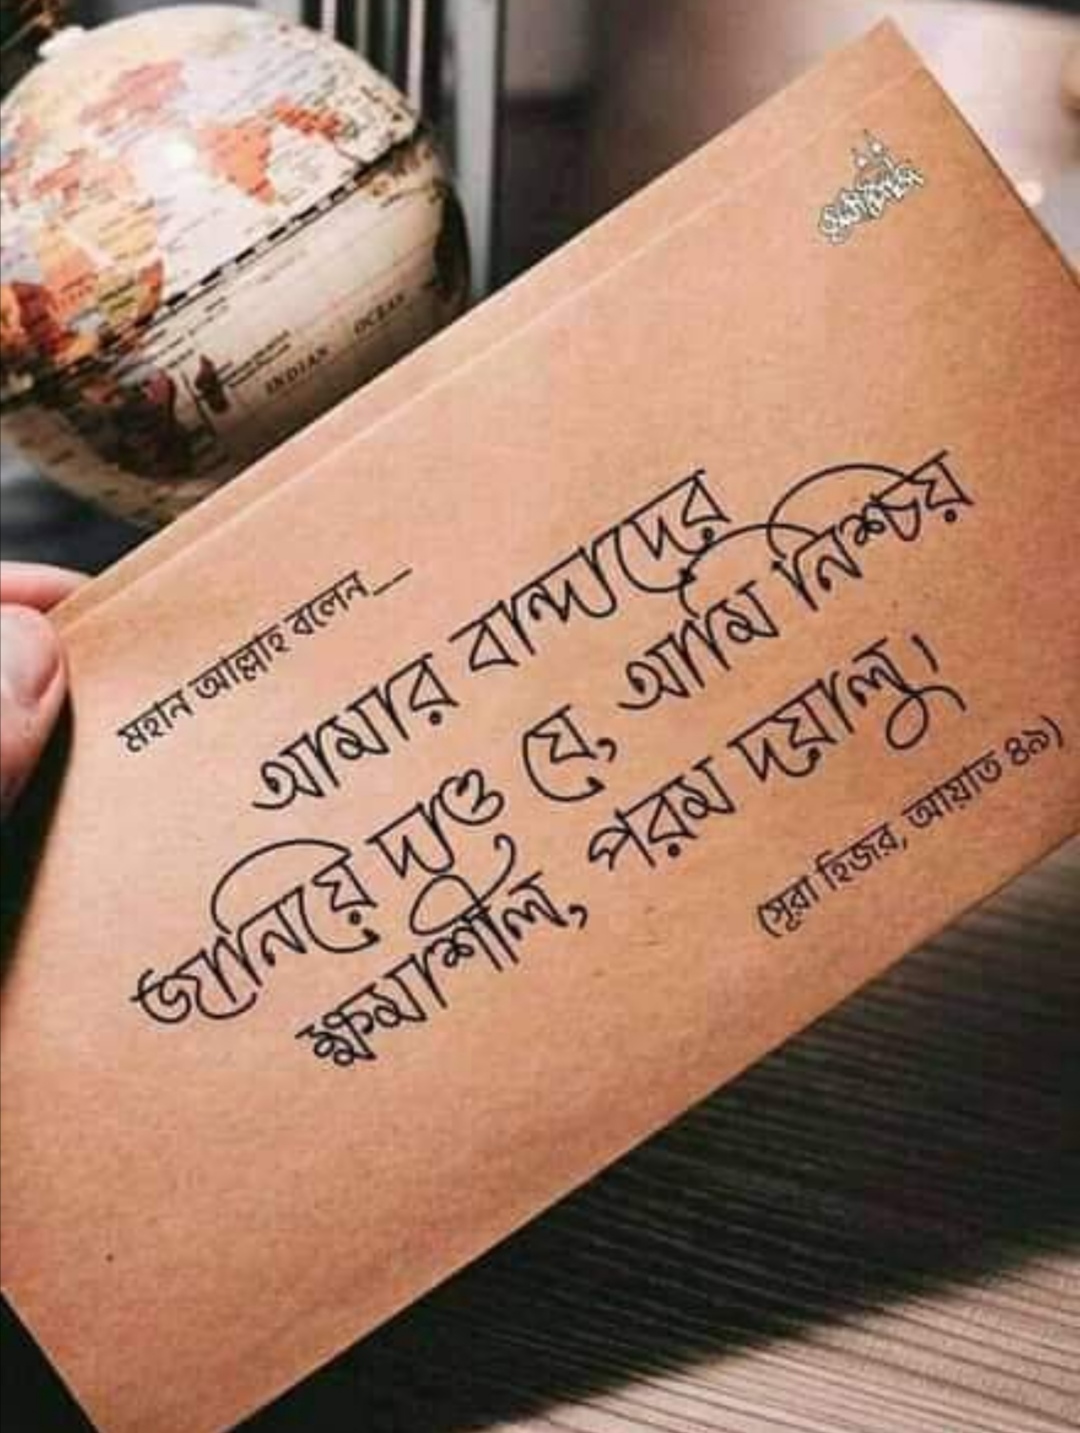 মহান আল্লাহ বলেন__
আমার বান্দাদের
জানিয়ে দাও যে, আমি নিশ্চয়
ক্ষমাশীল, পরম দয়ালু।
(সূরা হিজর, আয়াত ৪৯)
INDIAN OCEAN